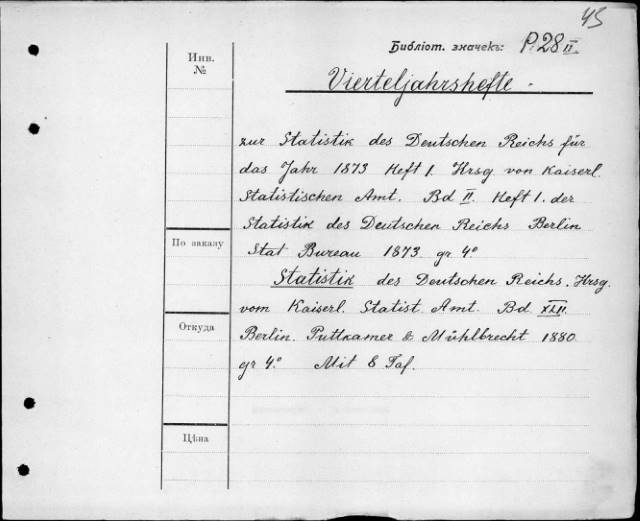 45
Библіот. значекъ: P.28 II
Инв.
№
Vierteljahrshefte.
zur Statistik des Deutschen Reichs für
das Jahr 1873 Heft 1. Hrsg. von Kaiserl.
Statistischen Amt. Bd II. Heft 1. der
Statistik des Deutschen Reichs Berlin
По заказу
Stat Bureau 1873. gr 4.°
Statistik des Deutschen Reichs. Hrsg.
vom Kaiserl. Statist. Amt. Bd
Откуда
Berlin. Puttkamer & Mühlbrecht 1880.
gr 4.° Mit 8 Taf.
Цѣна